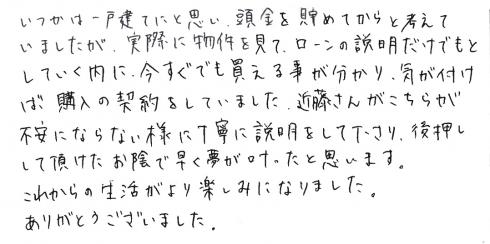 いつかは一戸建てにと思い、頭金を貯めてからと考えて
いましたが、実際に物件を見て、ローンの説明だけでもと
していく内に、今すぐでも買える事が分かり、気が付け
ば購入の契約をしていました。近藤さんがこちらが
不安にならない様に丁寧に説明をして下さり、後押し
して頂けたお陰で早く夢が叶ったと思います。
これからの生活がより楽しみになりました。
ありがとうございました。